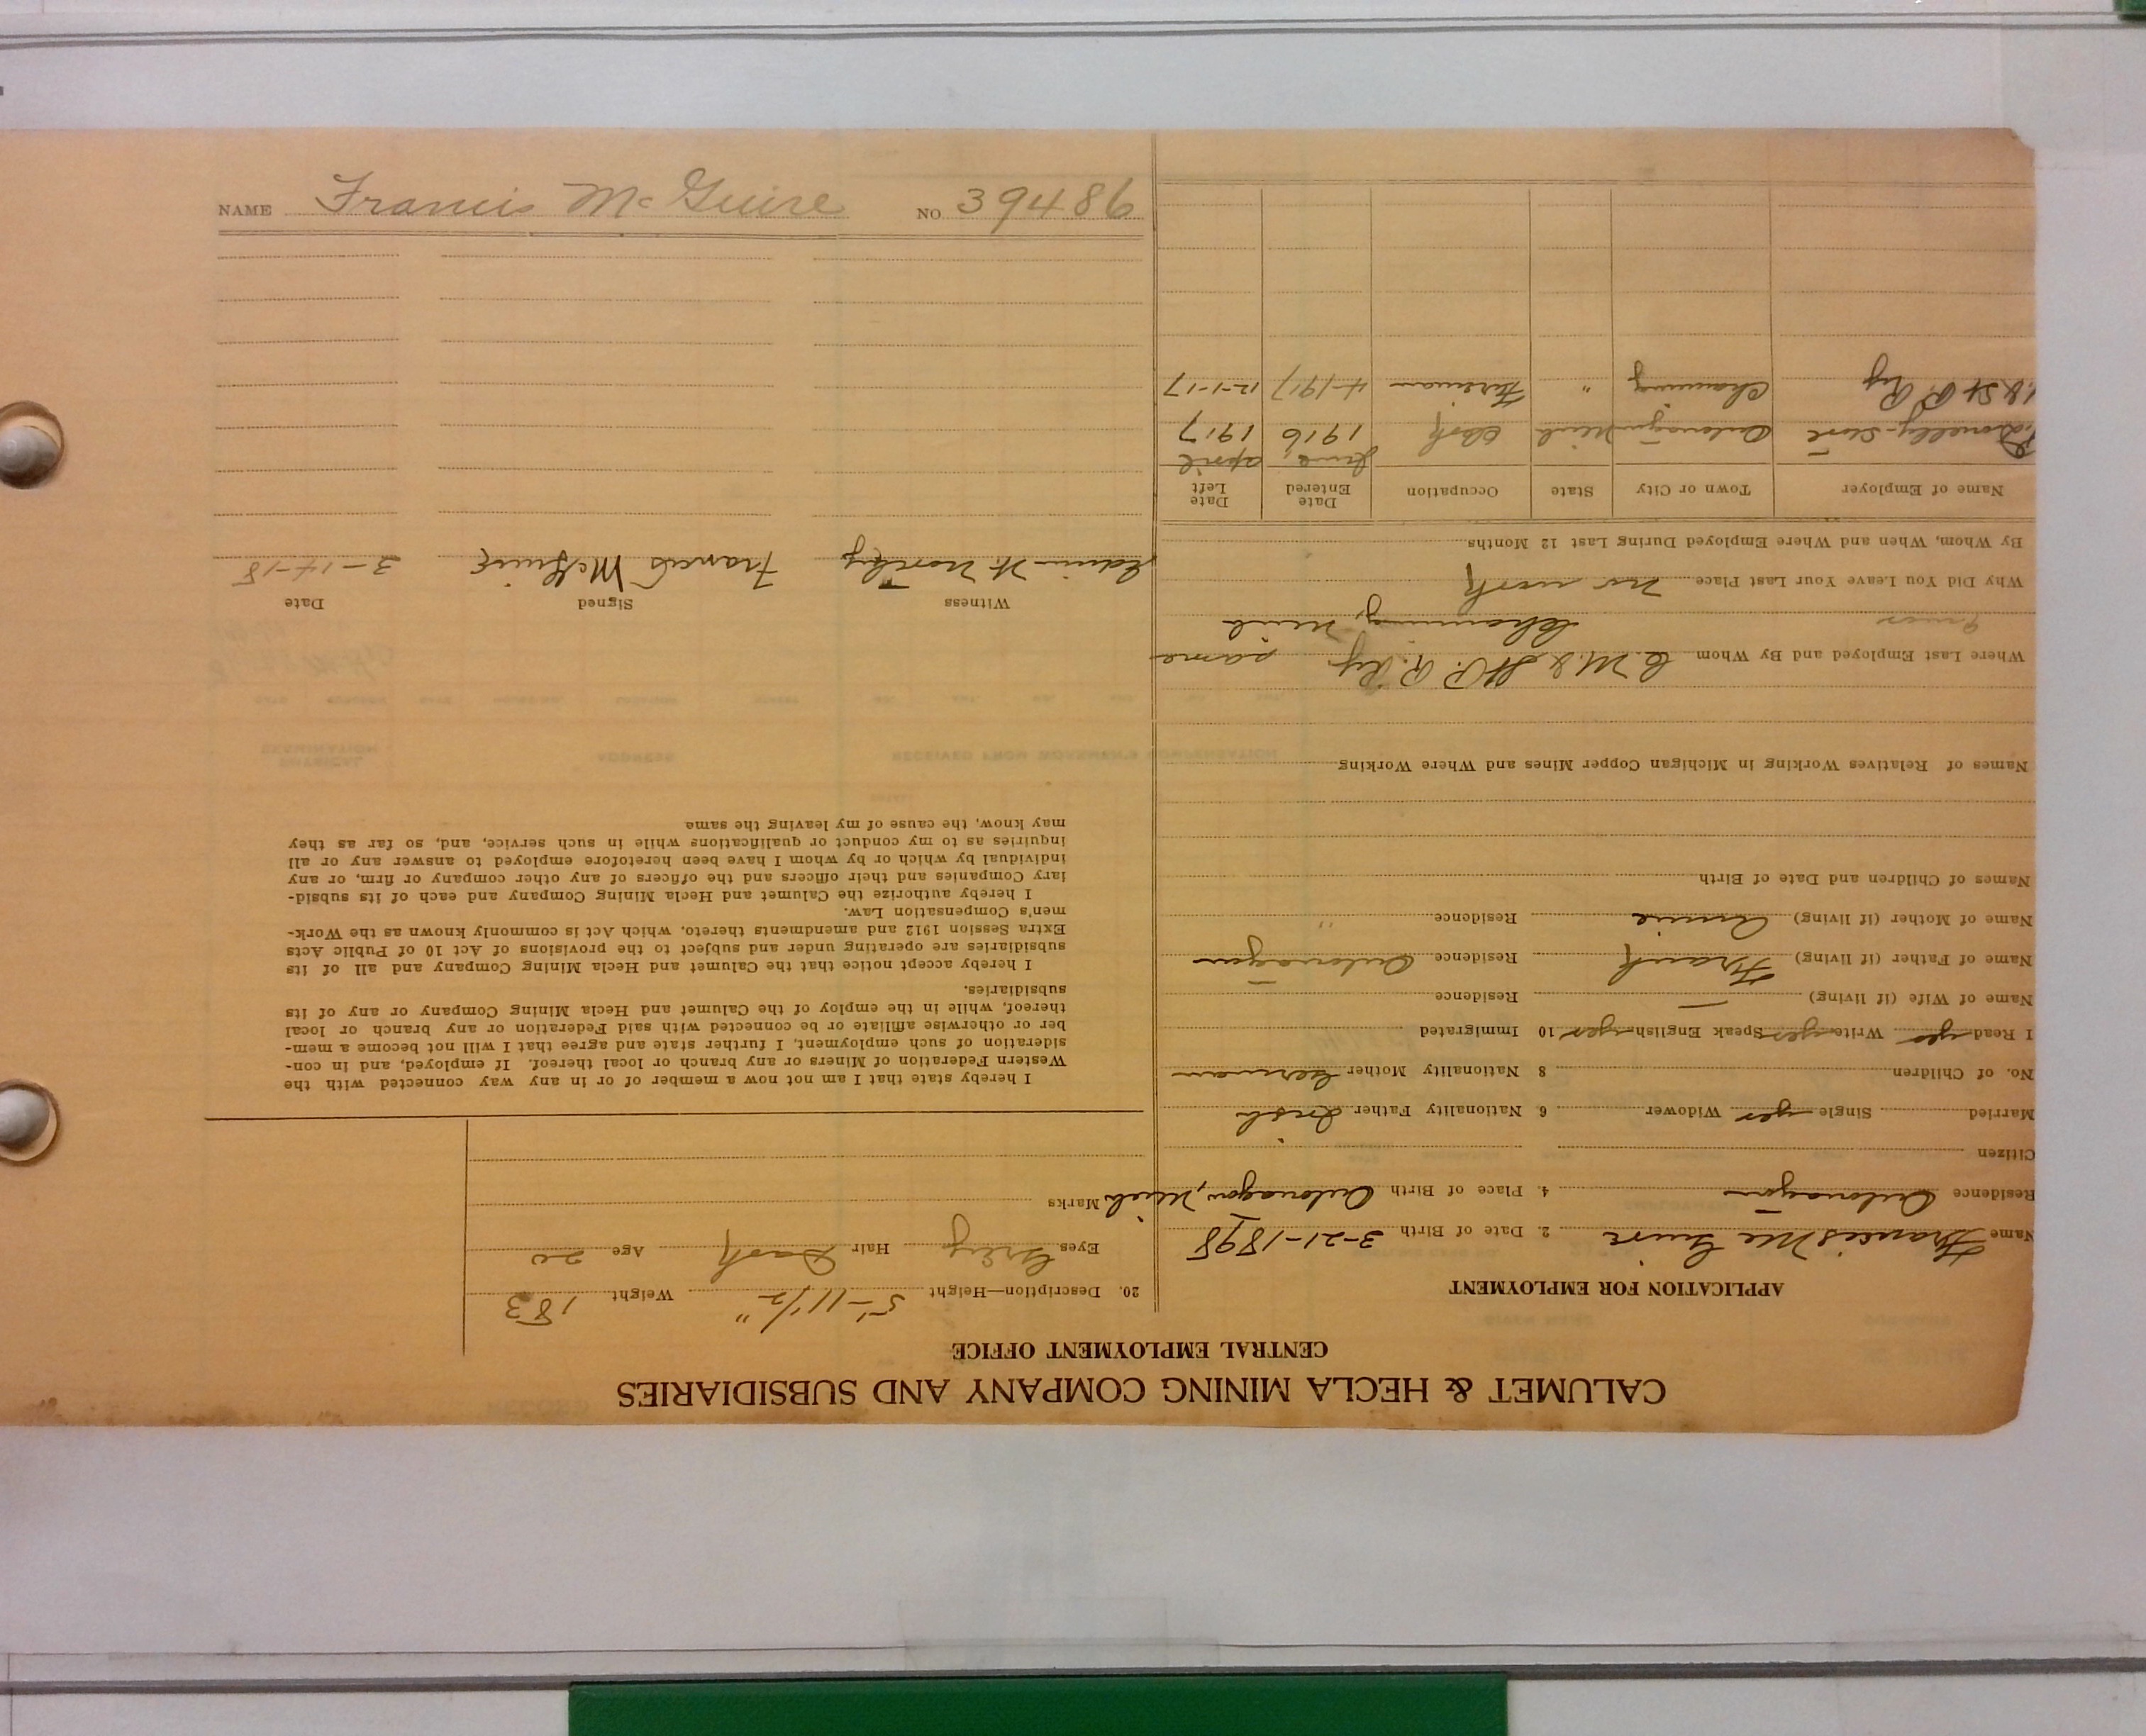 CALUMET & HECLA MINING COMPANY AND SUBSIDIARIES
CENTRAL EMPLOYMENT OFFICE
APPLICATION FOR EMPLOYMENT
Name Francis Mc Guire 2. Date of Birth 3-21-1898
Residence Ontonagon 4. Place of Birth Ontonagon, Mich
Citizen
Married Single yes Widower 6 Nationality Father Irish
No. of Children 8 Nationality Mother German
I Read yes Write yes Speak English yes 10 Immigrated
Name of Wife (if living) — Residence
Name of Father (if living) Frank Residence Ontonagon
Name of Mother (if living) Annie Residence "
Names of Children and Date of Birth
Names of Relatives Working in Michigan Copper Mines and Where Working
Where Last Employed and By Whom C. M. & St P. R. Ry same
Channing, Mich
Why Did You Leave Your Last Place no work
By Whom, When and Where Employed During Last 12 Months
Name of Employer Town or City State Occupation Date Entered Date Left
Donelly-Store Ontonagon Mich Clerk June 1916 April 1917
& St P. Ry Channing " Fireman 4-1917 12-1-17
20. Description—Height 5'-11 1/2" Weight 183
Eyes Grey Hair Dark Age 20
Marks
I hereby state that I am not now a member of or in any way connected with the
Western Federation of Miners or any branch or local thereof. If employed, and in con-
sideration of such employment, I further state and agree that I will not become a mem-
ber or otherwise affiliate or be connected with said Federation or any branch or local
thereof, while in the employ of the Calumet and Hecla Mining Company or any of its
subsidiaries.
I hereby accept notice that the Calumet and Hecla Mining Company and all of its
subsidiaries are operating under and subject to the provisions of Act 10 of Public Acts
Extra Session 1912 and amendments thereto, which Act is commonly known as the Work-
men's Compensation Law.
I hereby authorize the Calumet and Hecla Mining Company and each of its subsid-
iary Companies and their officers and the officers of any other company or firm, or any
individual by which or by whom I have been heretofore employed to answer any or all
inquiries as to my conduct or qualifications while in such service, and, so far as they
may know, the cause of my leaving the same
Witness Signed Date
Edwin H Francis McGuire 3-14-18
NAME Francis McGuire NO 39486